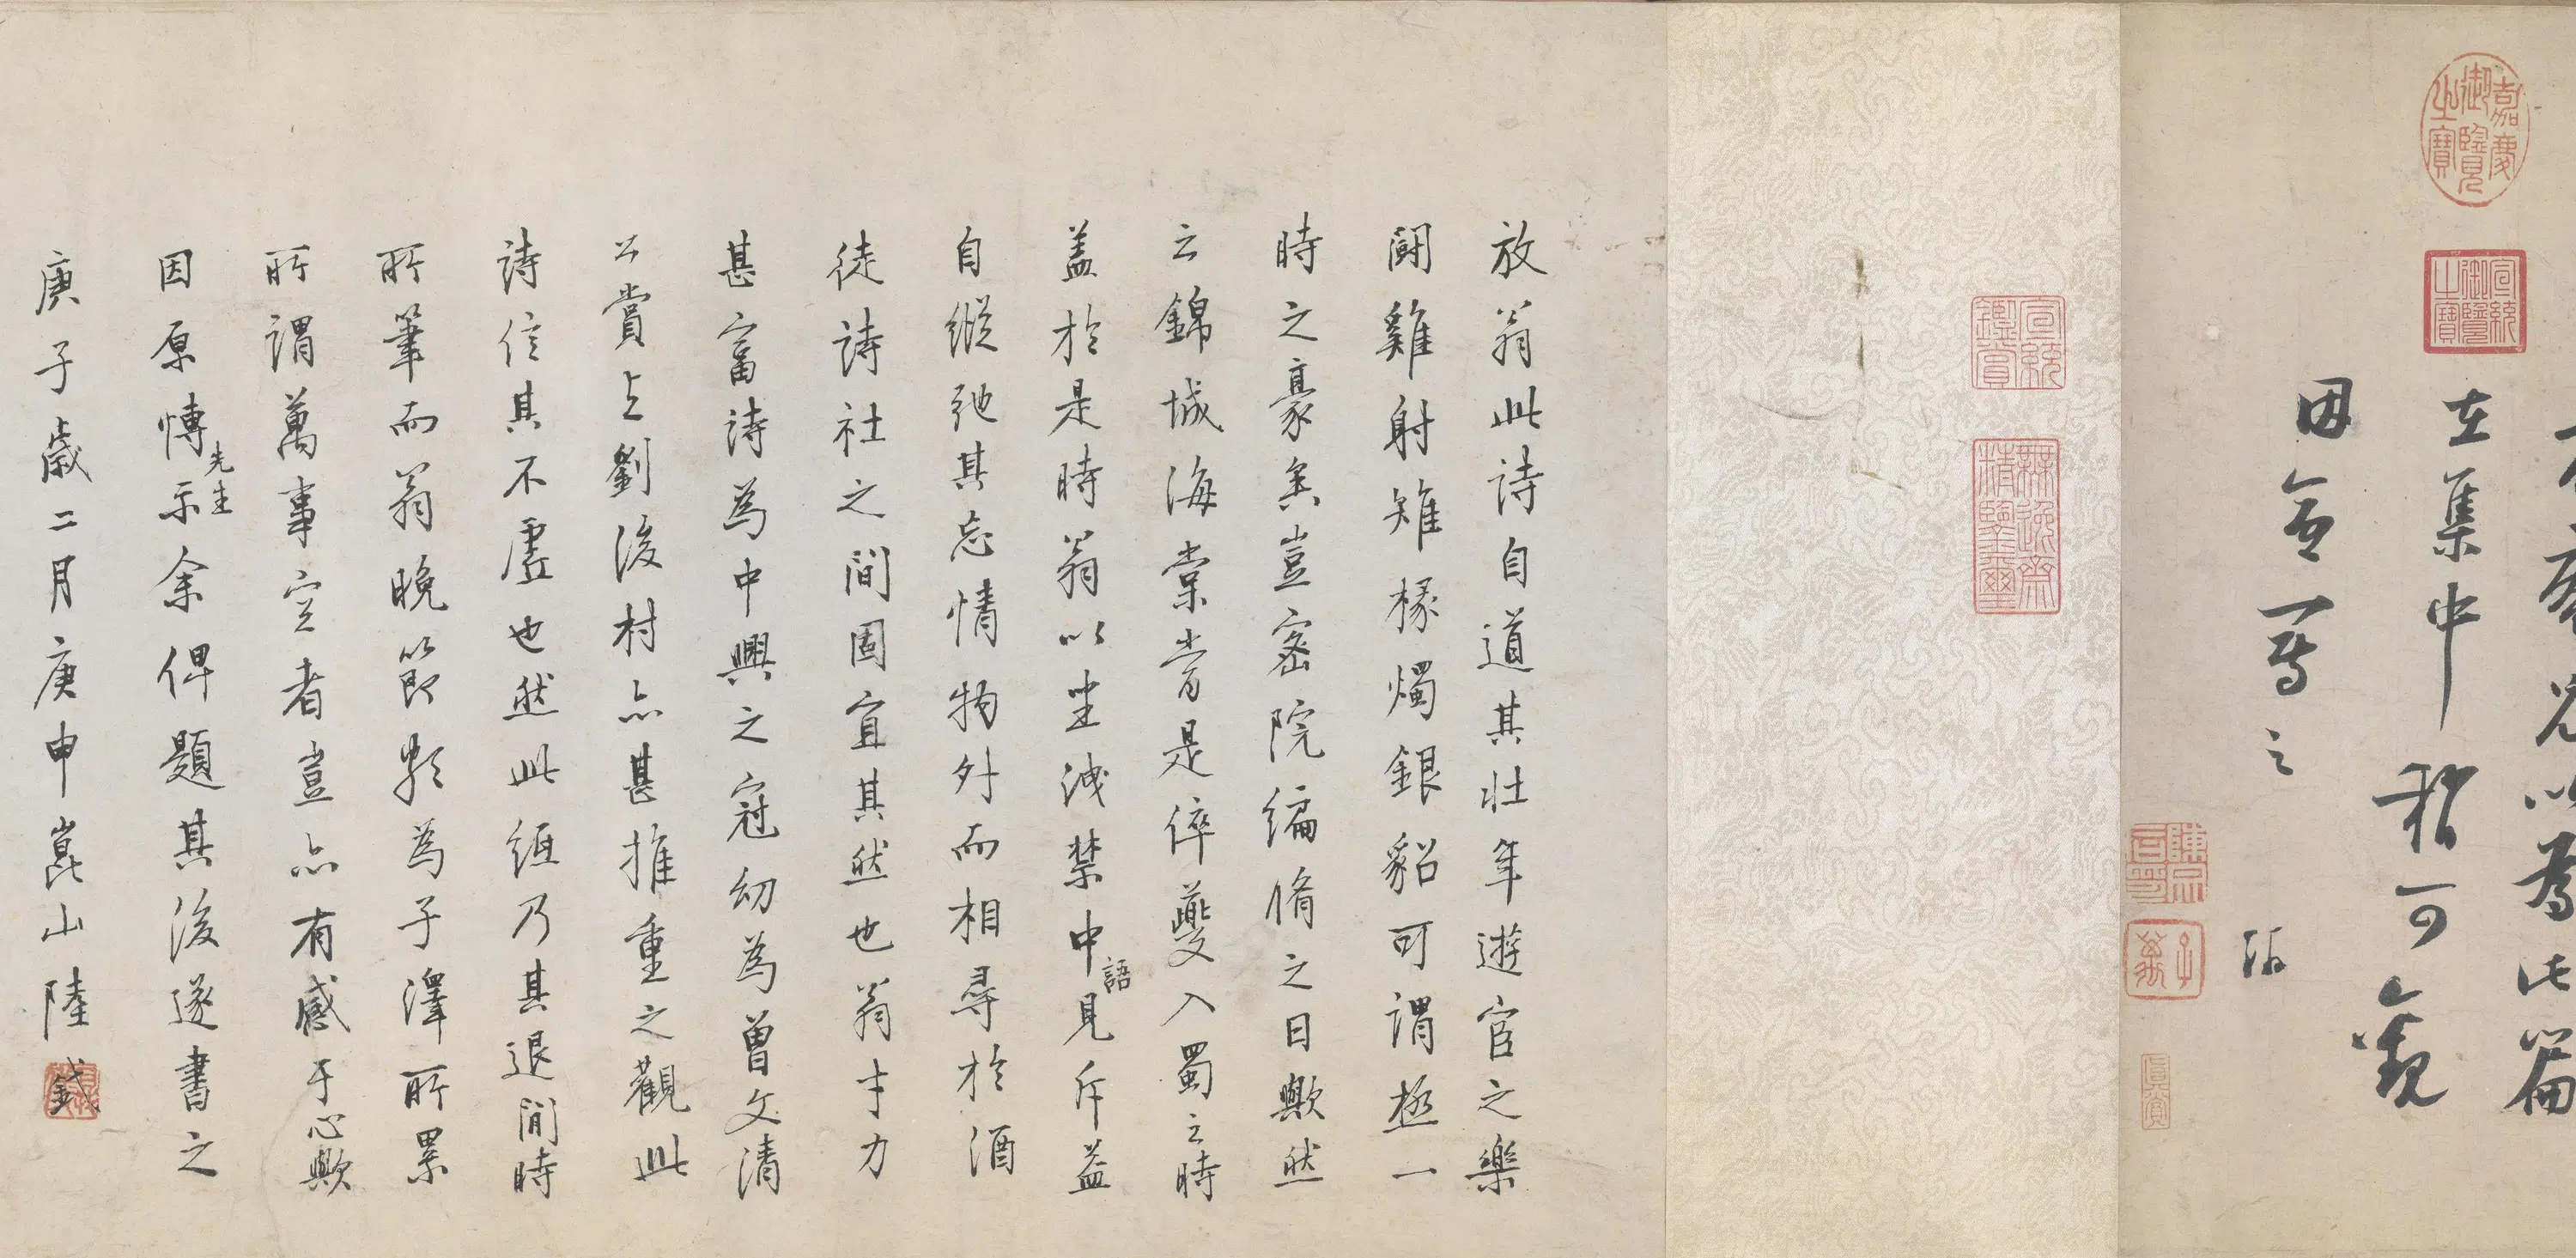 以為此篇
在集中稍可觀
因命寫之
嘉慶御覽之寶
宣統御覽之寶
陳氏
子萬
真賞
宣統鑑賞
無逸齋精鑒璽
放翁此詩自道其壯年遊宦之樂
鬭雞射雉椽燭銀貂可謂極一
時之豪矣豈密院編脩之日歟然
云錦城海棠當是倅夔入蜀之時
蓋於是時翁以坐泄禁中語見斥益
自縱弛其忘情物外而相尋於酒
徒詩社之間固宜其然也翁才力
甚富詩為中興之冠幼為曾文清
公賞上劉後村亦甚推重之觀此
詩信其不虛也然此紙乃其退閒時
所筆而翁晚節類為子澤所累
所謂萬事空者豈亦有感于心歟
因原博先生示余俾題其後遂書之
庚子歲二月庚申崑山陸釴